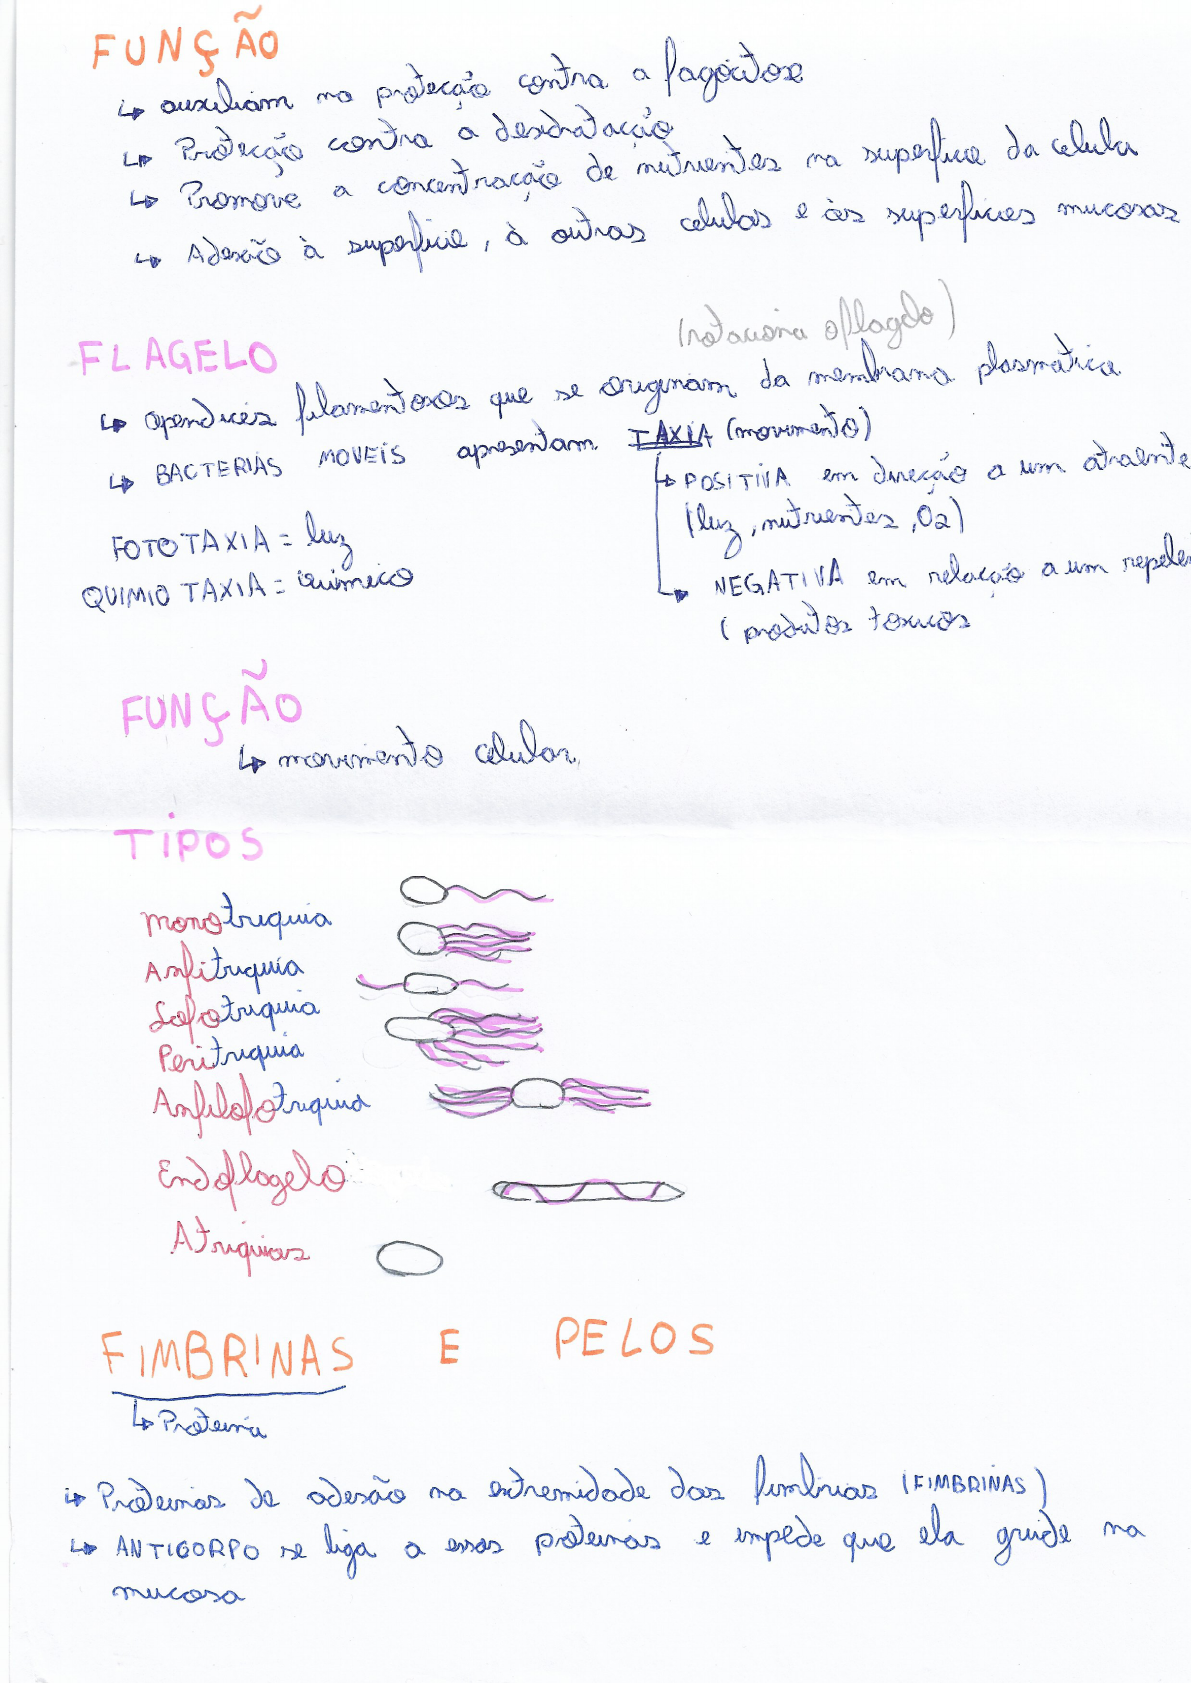 FUNÇÃO
↳ auxiliam na proteção contra a fagocitose
↳ Proteção contra a desidratação
↳ Promove a concentração de nutrientes na superfície da celula
↳ Adesão à superfície, à outras celulas e às superfícies mucosas
(rotaciona o flagelo)
FLAGELO
↳ apendices filamentosos que se originam da membrana plasmática
↳ BACTERIAS MOVEIS apresentam TAXIA (movimento)
↳ POSITIVA em direção a um atraente
(luz, nutrientes, O2)
FOTOTAXIA = luz
QUIMIOTAXIA = químico
↳ NEGATIVA em relação a um repelen
(produtos toxicos
FUNÇÃO
↳ movimento celular
TIPOS
Monotriquia
Anfitriquia
Lofotriquia
Peritriquia
Anfilofotriquia
Endoflagelo
Atriquias
FIMBRINAS E PELOS
↳ Proteina
↳ Proteinas de adesão na extremidade das fimbrias (FIMBRINAS)
↳ ANTICORPO se liga a essas proteinas e impede que ela grude na
mucosa